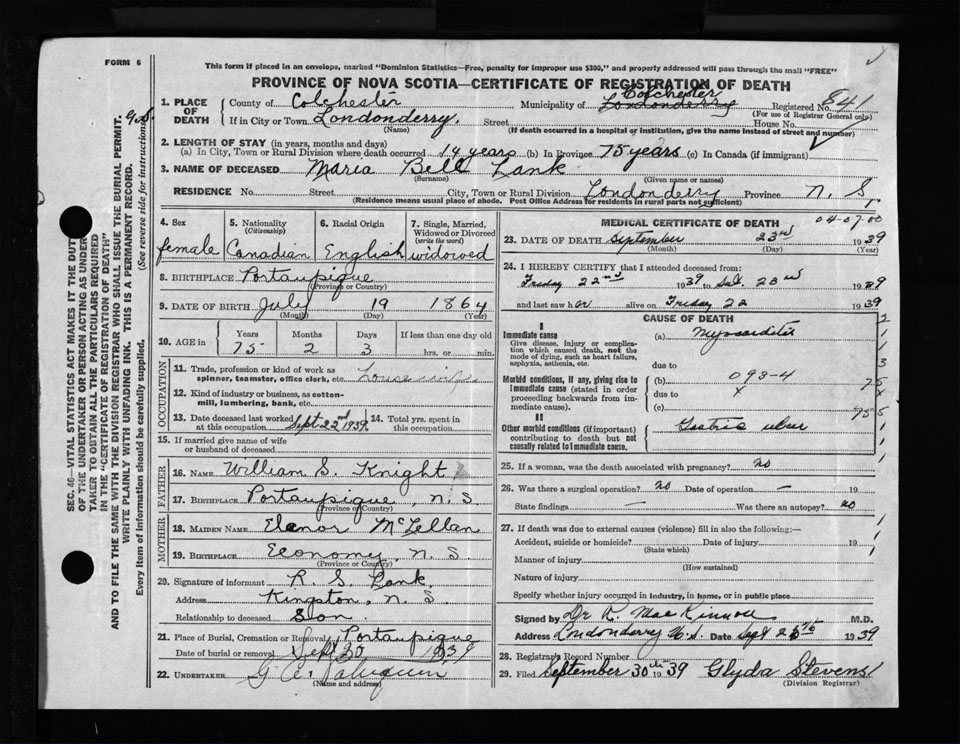 FORM 6
This form if placed in an envelope, marked "Dominion Statistics—Free, penalty for improper use $300", and properly addressed will pass through the mail "FREE"
PROVINCE OF NOVA SCOTIA—CERTIFICATE OF REGISTRATION OF DEATH
1. PLACE OF DEATH
County of Colchester Municipality of Londonderry Colchester Registered No. 841
(For use of Registrar General only)
If in City or Town Londonderry. Street House No.
(Name) (If death occurred in a hospital or institution, give the name instead of street and number)
2. LENGTH OF STAY (in years, months and days)
(a) In City, Town or Rural Division where death occurred 14 years (b) In Province 75 years (c) In Canada (if immigrant)
3. NAME OF DECEASED Maria Bell Lank
(Surname) (Given name or names)
RESIDENCE No. Street City, Town or Rural Division Londonderry Province N. S.
(Residence means usual place of abode. Post Office Address for residents in rural parts not sufficient)
4. Sex female
5. Nationality (Citizenship) Canadian
6. Racial Origin English
7. Single, Married, Widowed or Divorced (write the word) widowed
8. BIRTHPLACE Portaupique
(Province or Country)
9. DATE OF BIRTH July 19 1864
(Month) (Day) (Year)
10. AGE in Years Months Days If less than one day old
75 2 3 hrs. or min.
OCCUPATION
11. Trade, profession or kind of work as spinner, teamster, office clerk, etc. housewife
12. Kind of industry or business, as cotton-mill, lumbering, bank, etc.
13. Date deceased last worked at this occupation Sept 22nd 1939
14. Total yrs. spent in this occupation
15. If married give name of wife or husband of deceased
FATHER
16. NAME William S. Knight
17. BIRTHPLACE Portaupique, N. S
(Province or Country)
MOTHER
18. MAIDEN NAME Elenor McLellan
19. BIRTHPLACE Economy, N. S
(Province or Country)
20. Signature of informant R. S. Lank.
Address Kingston, N. S.
Relationship to deceased Son.
21. Place of Burial, Cremation or Removal Portaupique
Date of burial or removal Sept 30 1939
22. UNDERTAKER G.
(Name and address)
MEDICAL CERTIFICATE OF DEATH
04-07-00
23. DATE OF DEATH September 23rd 1939
(Month) (Day) (Year)
24. I HEREBY CERTIFY that I attended deceased from:
Friday 22nd 1939 to Sat. 23rd 1939
and last saw her alive on Friday 22 1939
CAUSE OF DEATH
I
Immediate cause
Give disease, injury or complication which caused death, not the mode of dying, such as heart failure, asphyxia, asthenia, etc.
(a) Myocarditis
due to
Morbid conditions, if any, giving rise to immediate cause (stated in order proceeding backwards from immediate cause).
(b) 093-4
due to x
(c)
II
Other morbid conditions (if important) contributing to death but not causally related to immediate cause.
Gastric ulcer
25. If a woman, was the death associated with pregnancy? no
26. Was there a surgical operation? no Date of operation — 19
State findings — Was there an autopsy? no
27. If death was due to external causes (violence) fill in also the following:—
Accident, suicide or homicide? Date of injury 19
(State which)
Manner of injury
(How sustained)
Nature of injury
Specify whether injury occurred in industry, in home, or in public place
Signed by Dr R. MacKinnon M.D.
Address Londonderry N.S. Date Sept 25th 1939
28. Registrar's Record Number
29. Filed September 30th 1939 Glyda Stevens
(Division Registrar)
SEC. 46—VITAL STATISTICS ACT MAKES IT THE DUTY OF THE UNDERTAKER OR PERSON ACTING AS UNDERTAKER TO OBTAIN ALL THE PARTICULARS REQUIRED IN THE "CERTIFICATE OF REGISTRATION OF DEATH"
AND TO FILE THE SAME WITH THE DIVISION REGISTRAR WHO SHALL ISSUE THE BURIAL PERMIT.
WRITE PLAINLY WITH UNFADING INK. THIS IS A PERMANENT RECORD.
Every item of information should be carefully supplied. (See reverse side for instructions)